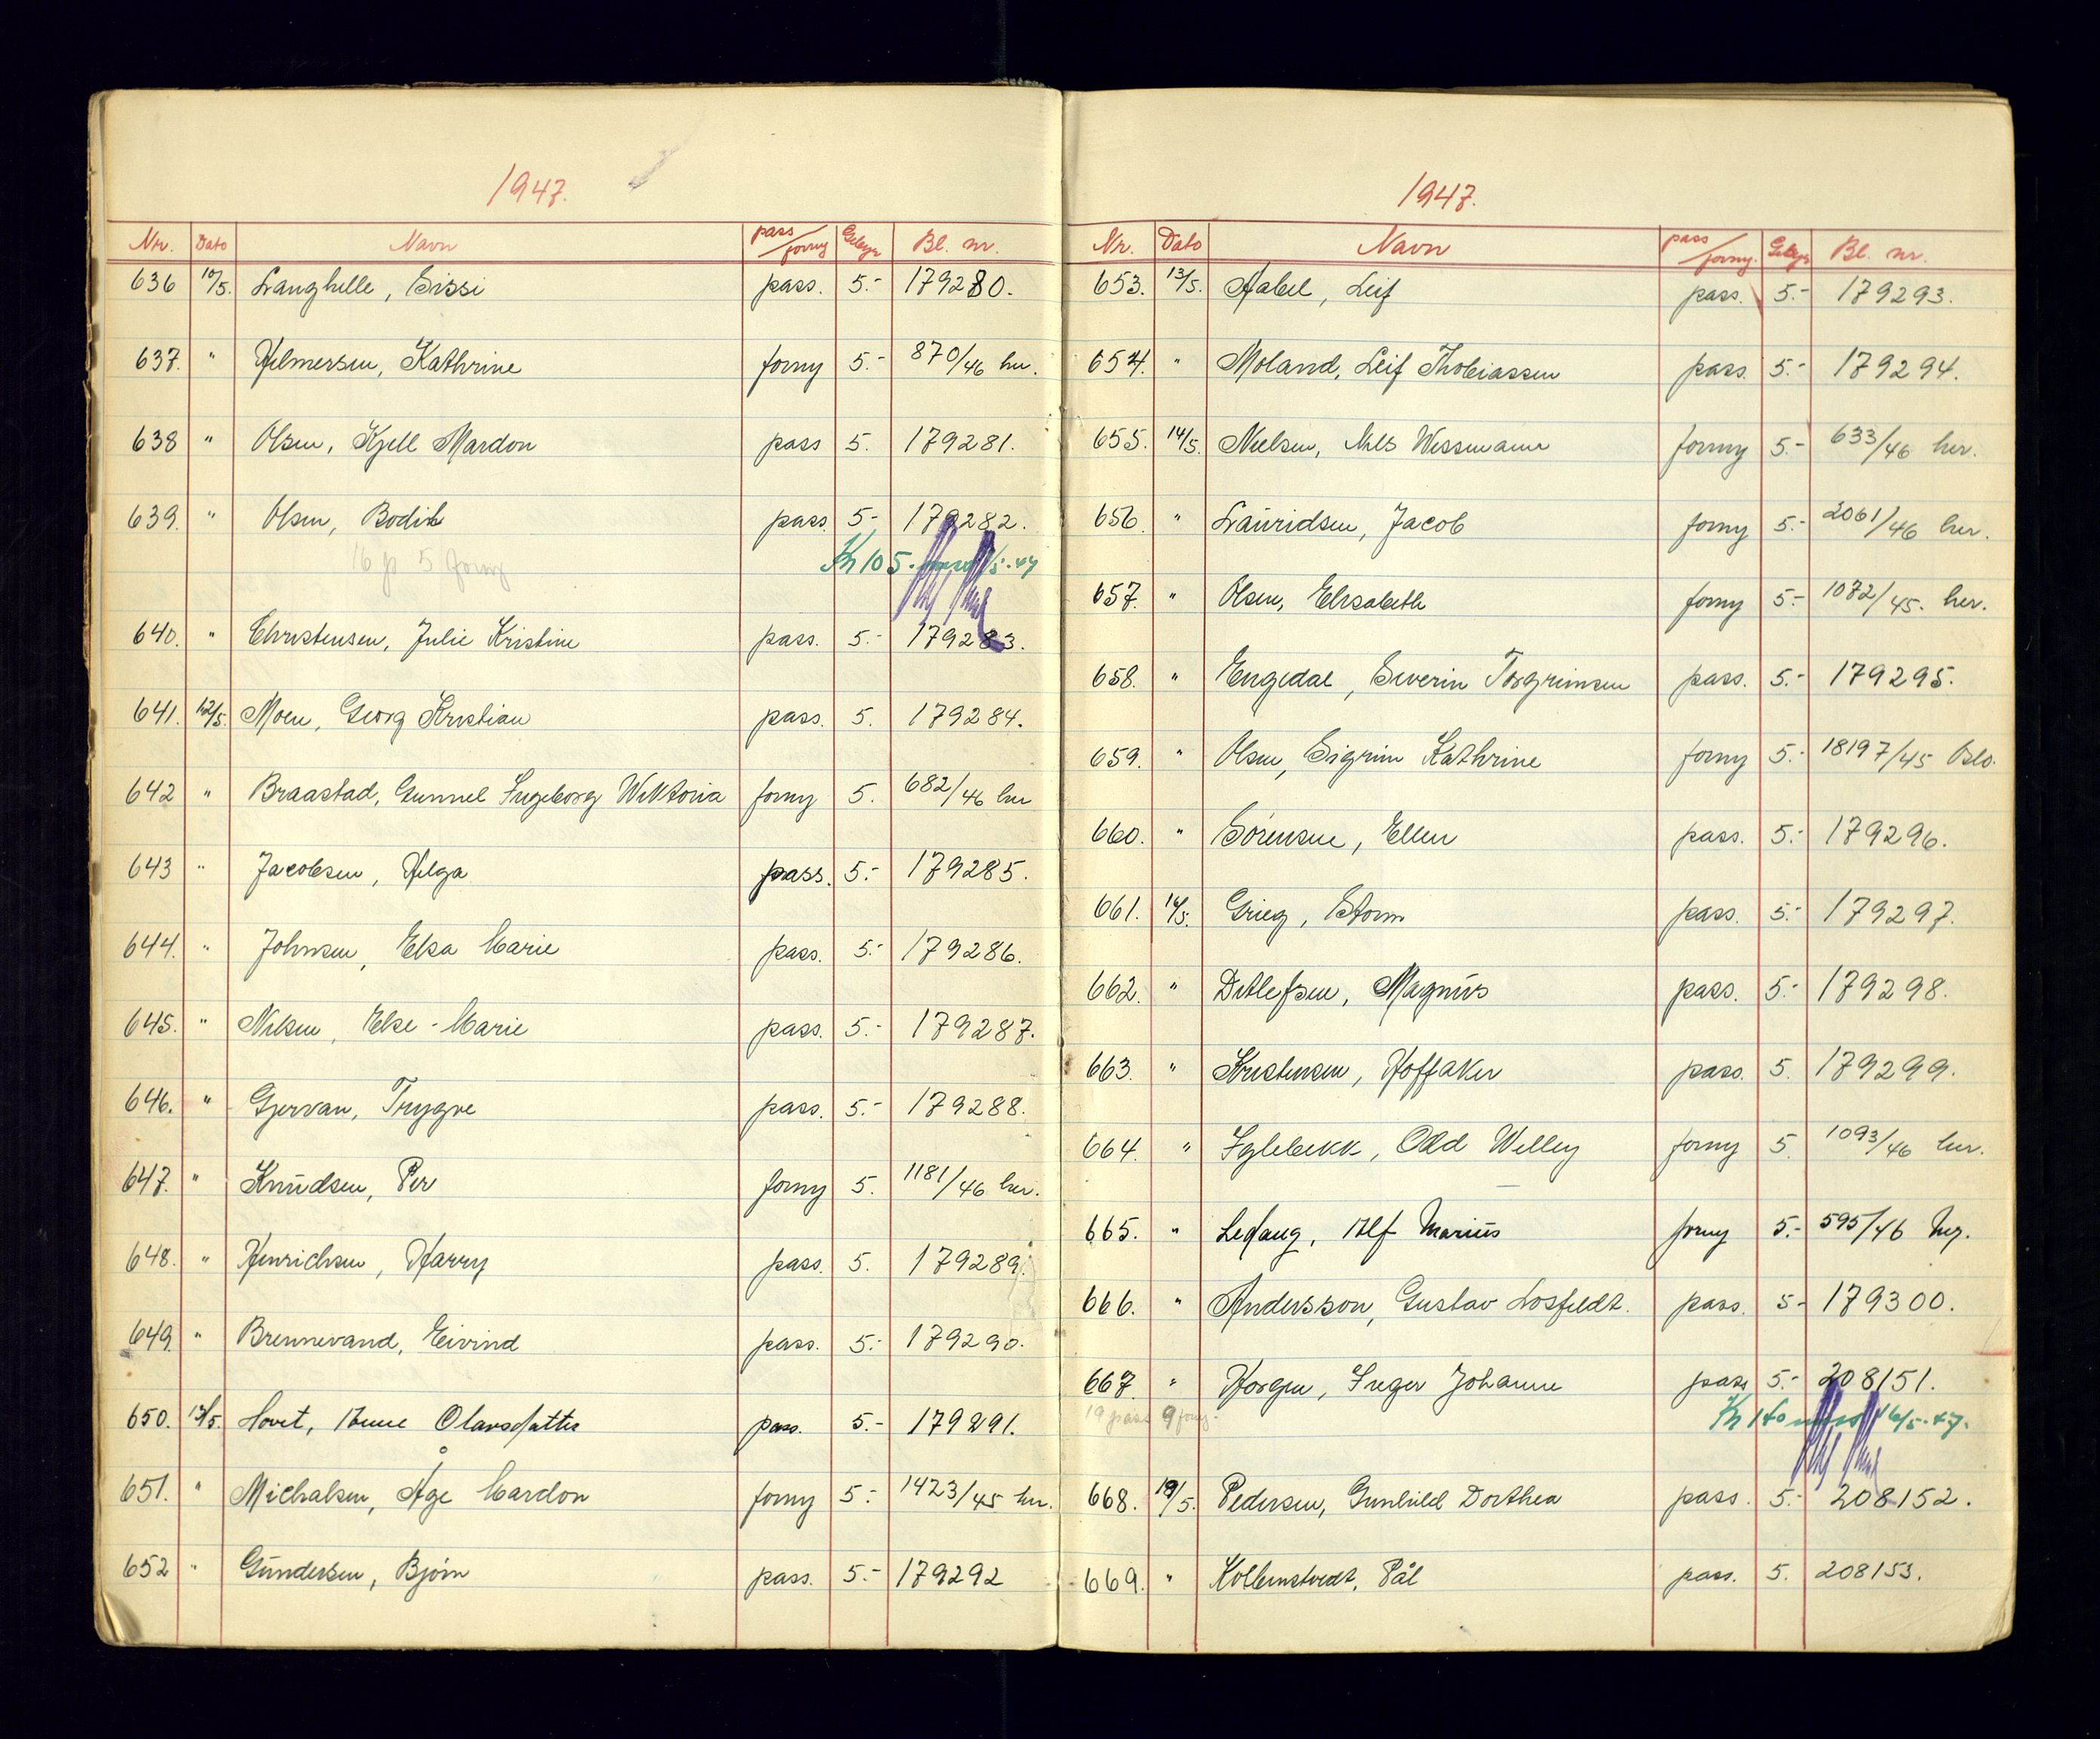 1947.
Nr. Dato Navn pass/forny Gebyr Bl. nr.
636 10/5. Langhelle, Sissi pass. 5.- 179280.
637. " Hilmersen, Kathrine forny 5.- 870/46 her.
638 " Olsen, Kjell Mardon pass 5. 179281.
639. " Olsen, Bodil pass 5- 179282.
16 p 5 forny Kr 105.- /5-47
640. " Christensen, Julie Kristine pass. 5.- 179283.
641. 12/5. Moen, Georg Kristian pass. 5. 179284.
642 " Braastad, Gunnel Ingeborg Wiktoria forny 5. 682/46 her
643 " Jacobsen, Helga pass. 5.- 179285.
644. " Johnsen, Elsa Marie pass. 5.- 179286.
645. " Nilsen, Else-Marie pass. 5.- 179287.
646. " Gjervan, Trygve pass. 5.- 179288.
647. " Knudsen, Per forny 5. 1181/46 her.
648. " Henrichsen, Harry pass. 5. 179289.
649. " Brennevand, Eivind pass. 5.- 179290.
650. 13/5. Hovet, Anne Olavsdatter pass. 5.- 179291.
651. " Michalsen, Åge Mardon forny 5.- 1423/45 her.
652 " Gundersen, Bjørn pass. 5.- 179292
1947.
Nr. Dato Navn pass/forny. Gebyr Bl. nr.
653. 13/5. Aabel, Leif pass. 5.- 179293.
654. " Moland, Leif Thobiassen pass. 5.- 179294.
655. 14/5. Nielsen, Nils Wissmann forny 5.- 633/46 her.
656. " Lauridsen, Jacob forny 5.- 2061/46 her.
657. " Olsen, Elisabeth forny 5.- 1072/45. her.
658. " Engedal, Severin Torgrimsen pass. 5.- 179295.
659. " Olsen, Sigrun Kathrine forny 5.- 18197/45 Oslo.
660. " Sørensen, Ellen pass. 5.- 179296.
661. /5. Grieg, Storm pass. 5.- 179297.
662. " Detlefsen, Magnus pass. 5.- 179298.
663. " Kristensen, Hoffaker pass. 5. 179299.
664. " Iglebekk, Odd Willy forny 5. 1093/46 her.
665. " Ledaug, Alf Marius forny 5.- 595/46 her.
666. " Andersson, Gustav Losfeldt. pass. 5- 179300.
667. " Horgen, Inger Johanne pass 5.- 208151.
19 pass 9 forny. Kr 140 16/5-47.
668. 19/5. Pedersen, Gunhild Dorthea pass. 5.- 208152.
669. " Kollemstvedt, Pål pass. 5. 208153.